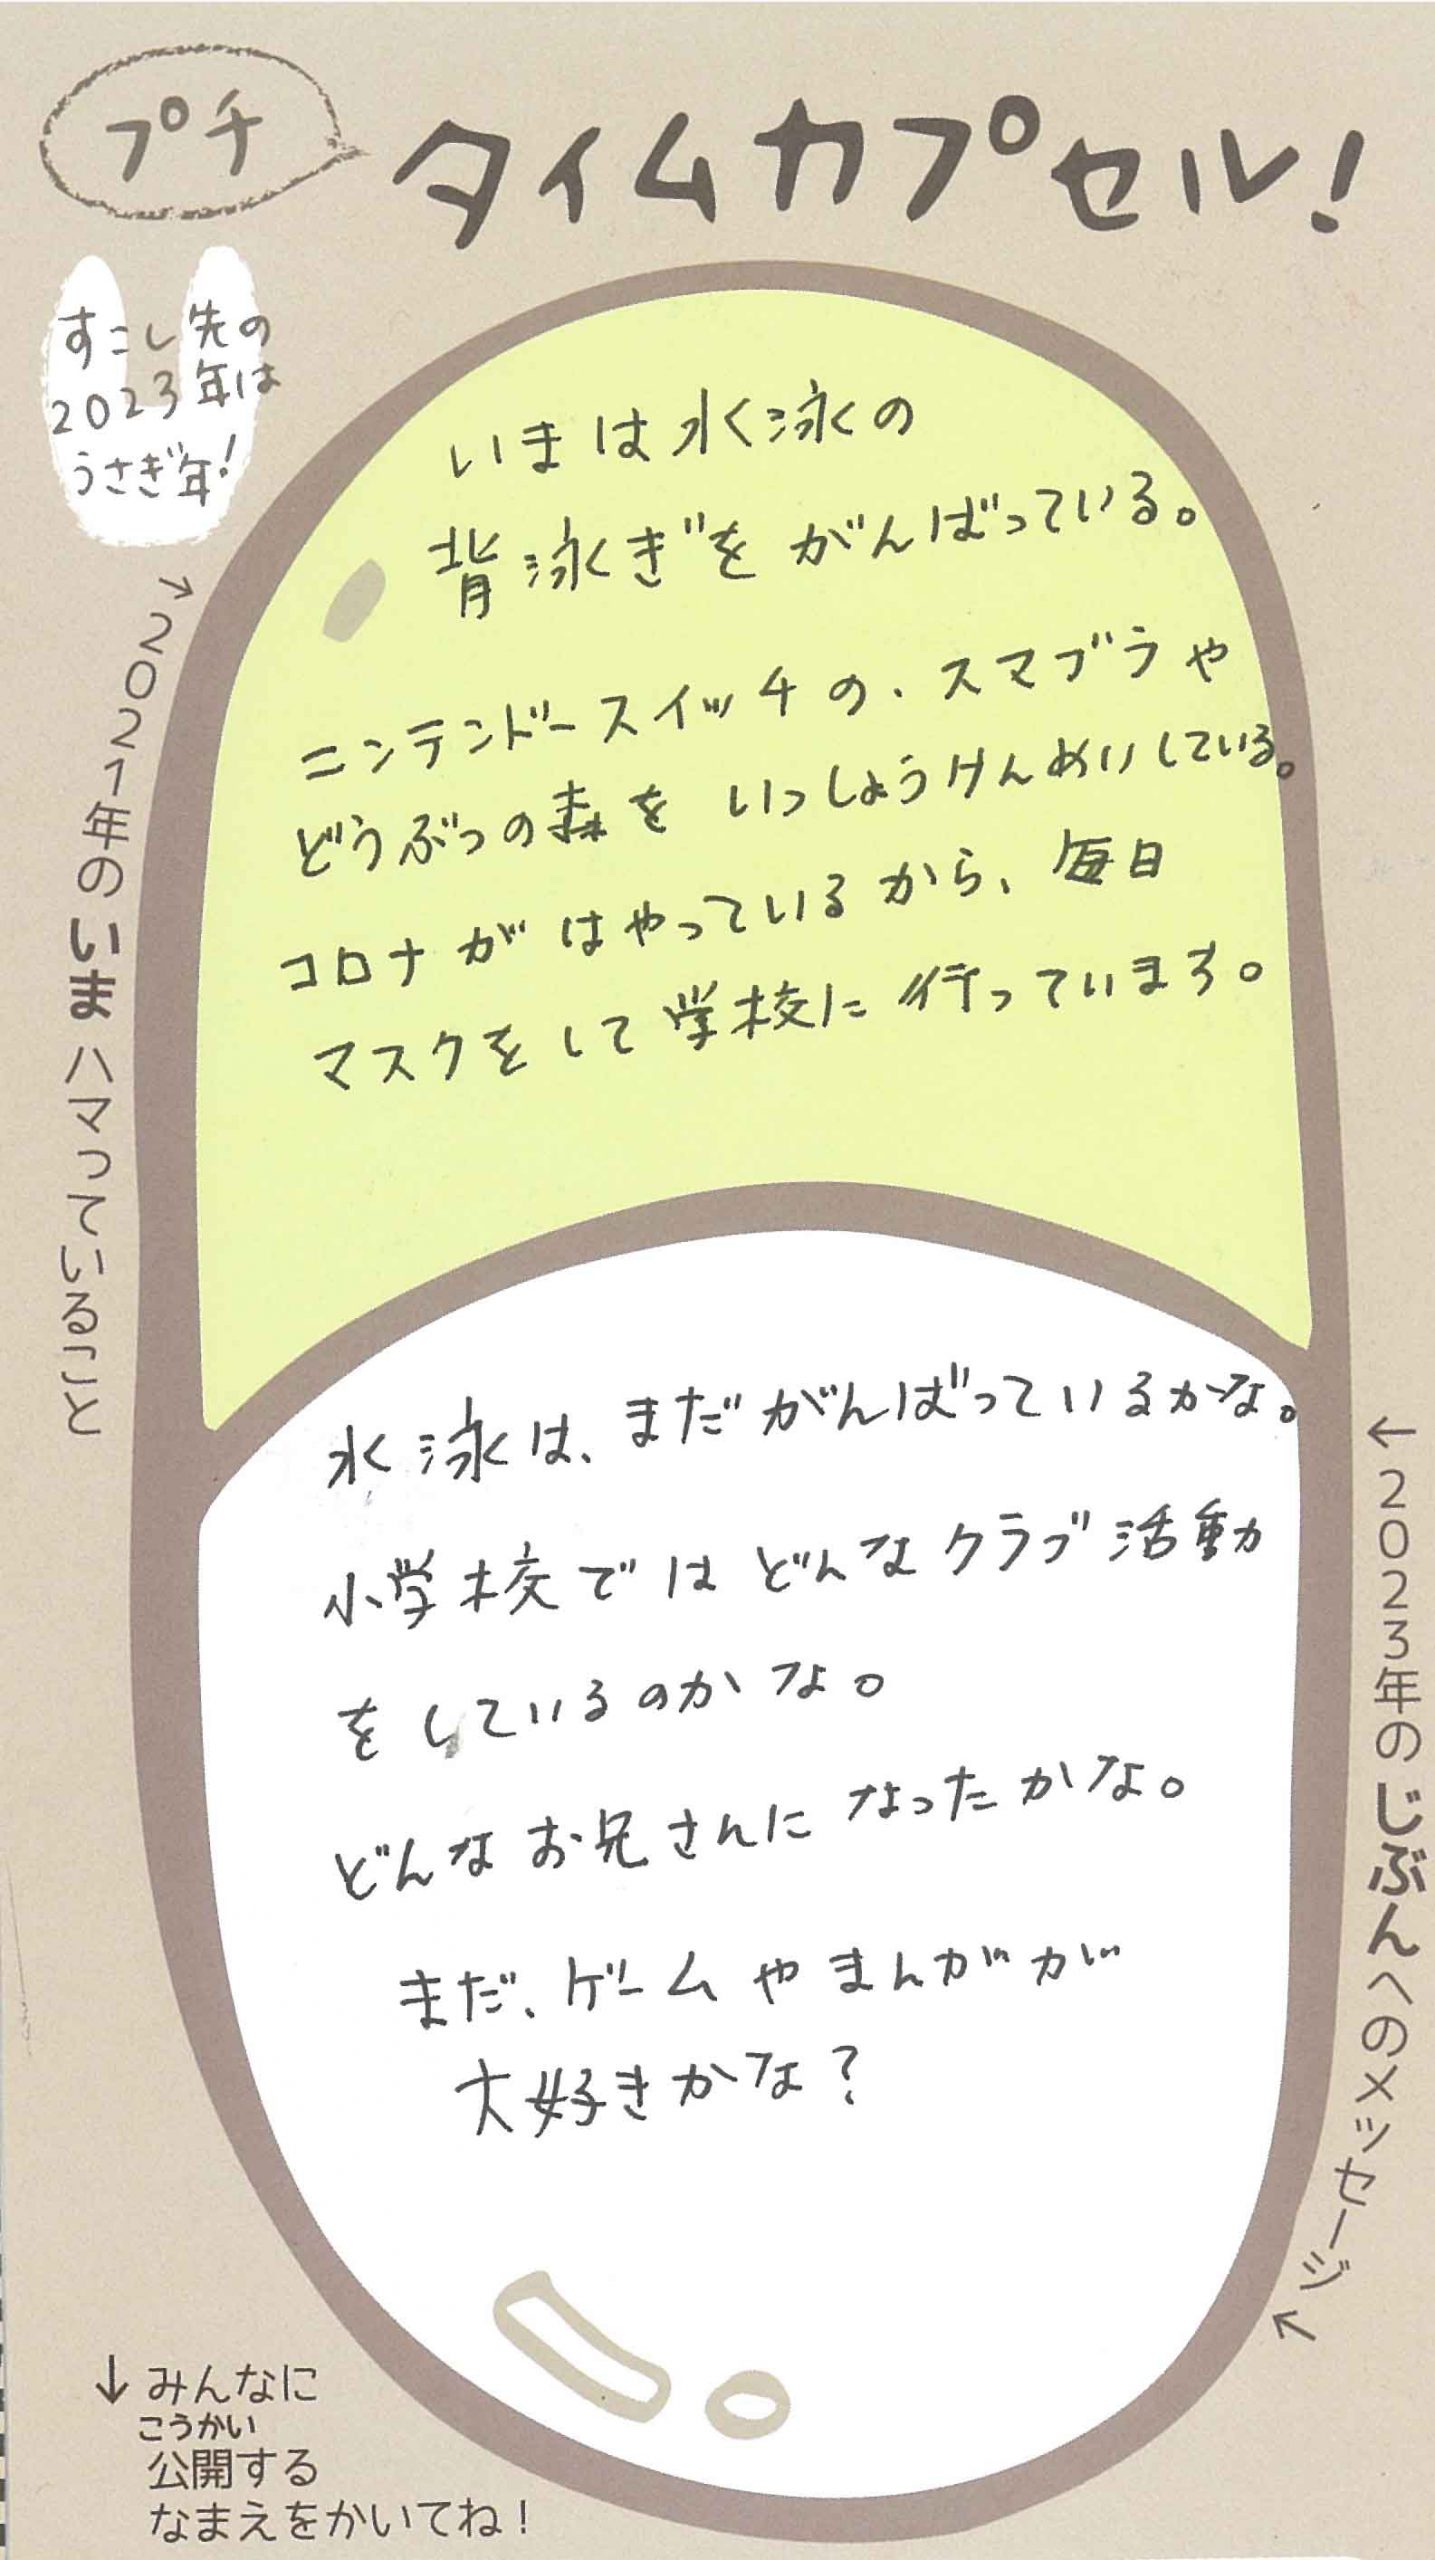 プチ
タイムカプセル!
すこし先の
2023年は
うさぎ年!
→2021年のいまハマっていること
いまは水泳の
背泳ぎをがんばっている。
ニンテンドースイッチの、スマブラや
どうぶつの森をいっしょうけんめいしている。
コロナがはやっているから、毎日
マスクをして学校に行っています。
←2023年のじぶんへのメッセージ
水泳は、まだがんばっているかな。
小学校ではどんなクラブ活動
をしているのかな。
どんなお兄さんになったかな。
まだ、ゲームやまんがが
大好きかな?
↓みんなに
こうかい
公開する
なまえをかいてね!